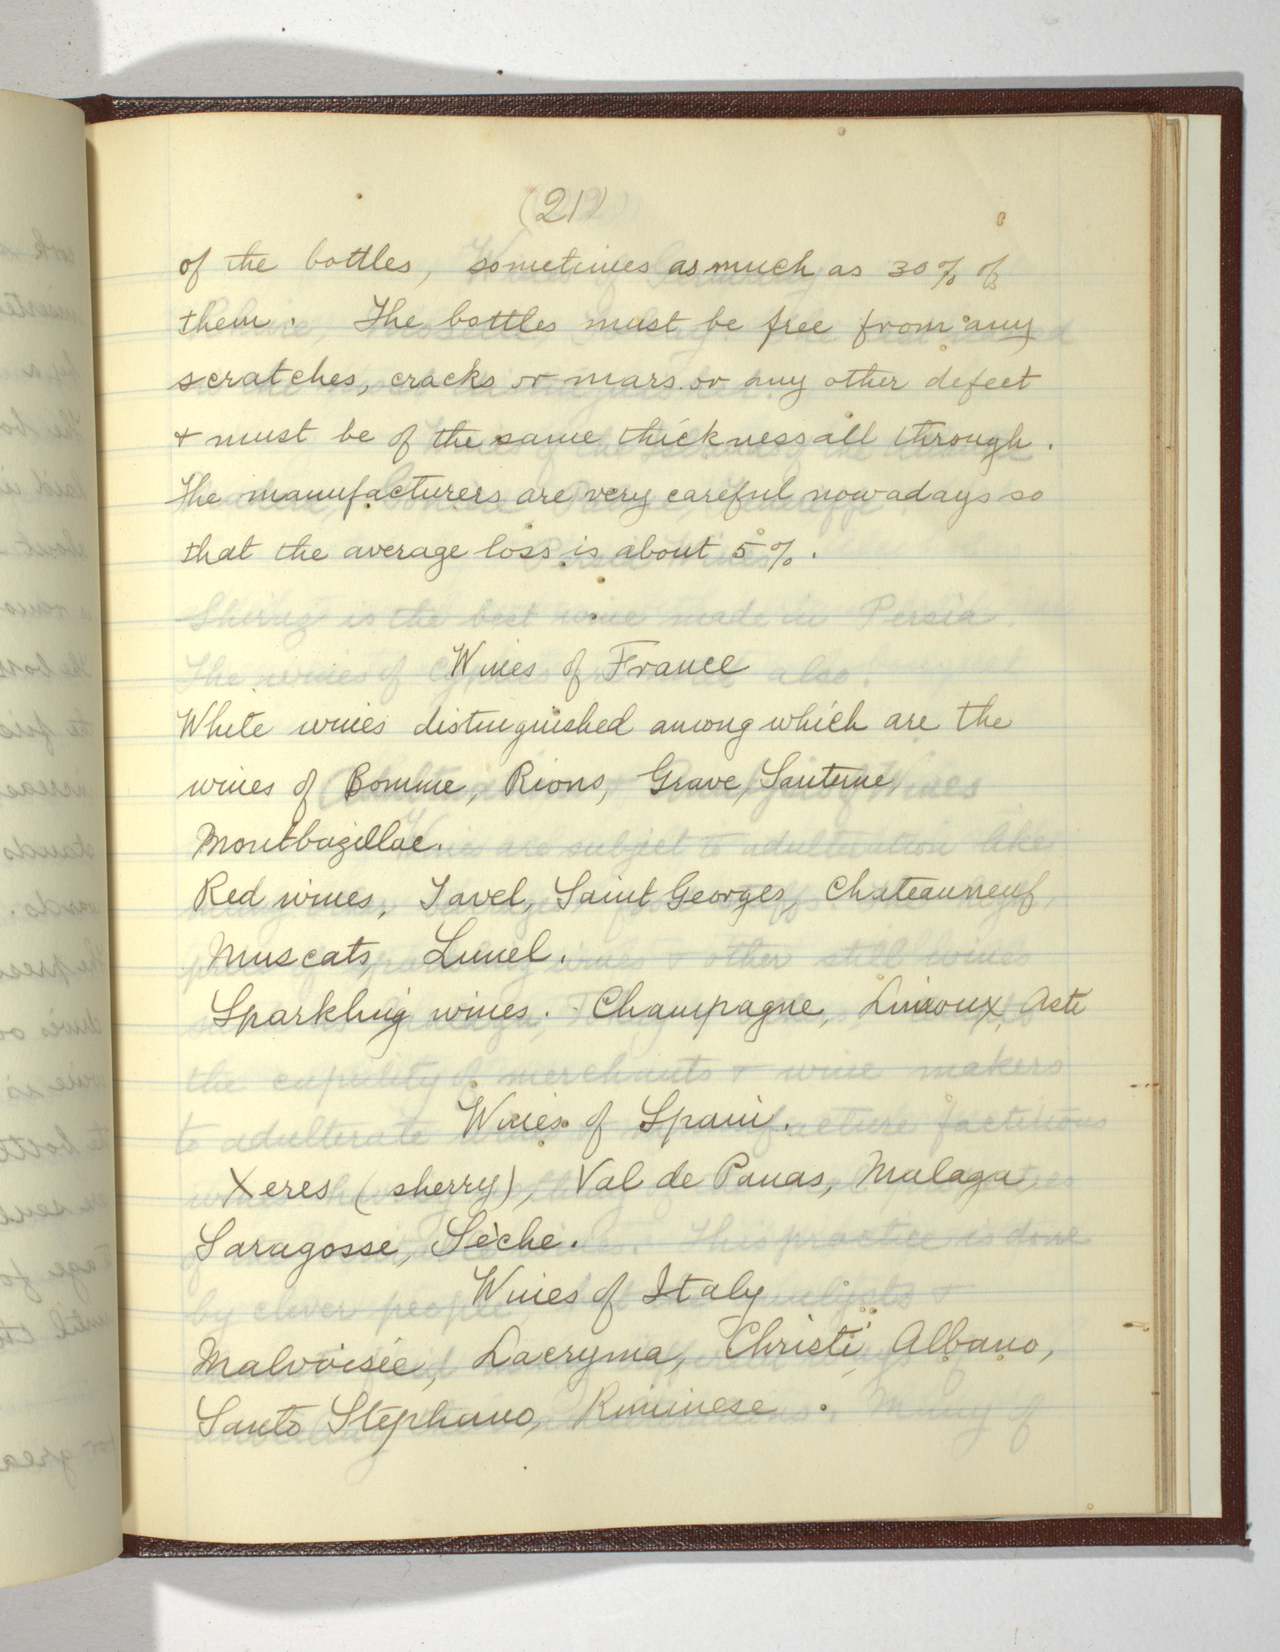 (21)
of the bottles, sometimes as much as 30% of
them. The bottles must be free from any
scratches, cracks or mars or any other defect
& must be of the same thickness all through.
The manufacturers are very careful nowadays so
that the average loss is about 5%.
Wines of France
White wines distinguished among which are the
wines of Bomme, Rions, Grave, Sauterne,
Montbazillac.
Red wines, Tavel, Saint Georges, Chateauneuf,
Muscats, Lunel.
Sparkling wines. Champagne, Limoux, Asti
Wines of Spain.
Xeres (sherry), Val de Panas, Malaga,
Saragosse, Sèche.
Wines of Italy
Malvoisie, Lacryma, Christi, Albano,
Santo Stephano, Riminese.